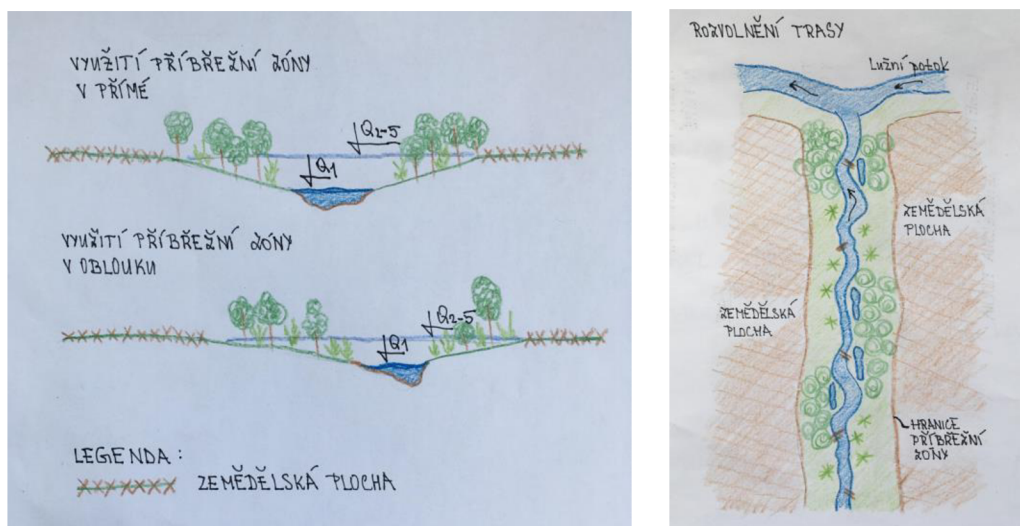 VYUŽITÍ PŘÍBŘEŽNÍ ZÓNY
V PŘÍMÉ
Q2-5
Q1
VYUŽITÍ PŘÍBŘEŽNÍ ZÓNY
V OBLOUKU
Q2-5
Q1
LEGENDA:
ZEMĚDĚLSKÁ PLOCHA
ROZVOLNĚNÍ TRASY
Lužní potok
ZEMĚDĚLSKÁ
PLOCHA
ZEMĚDĚLSKÁ
PLOCHA
HRANICE
PŘÍBŘEŽNÍ
ZÓNY